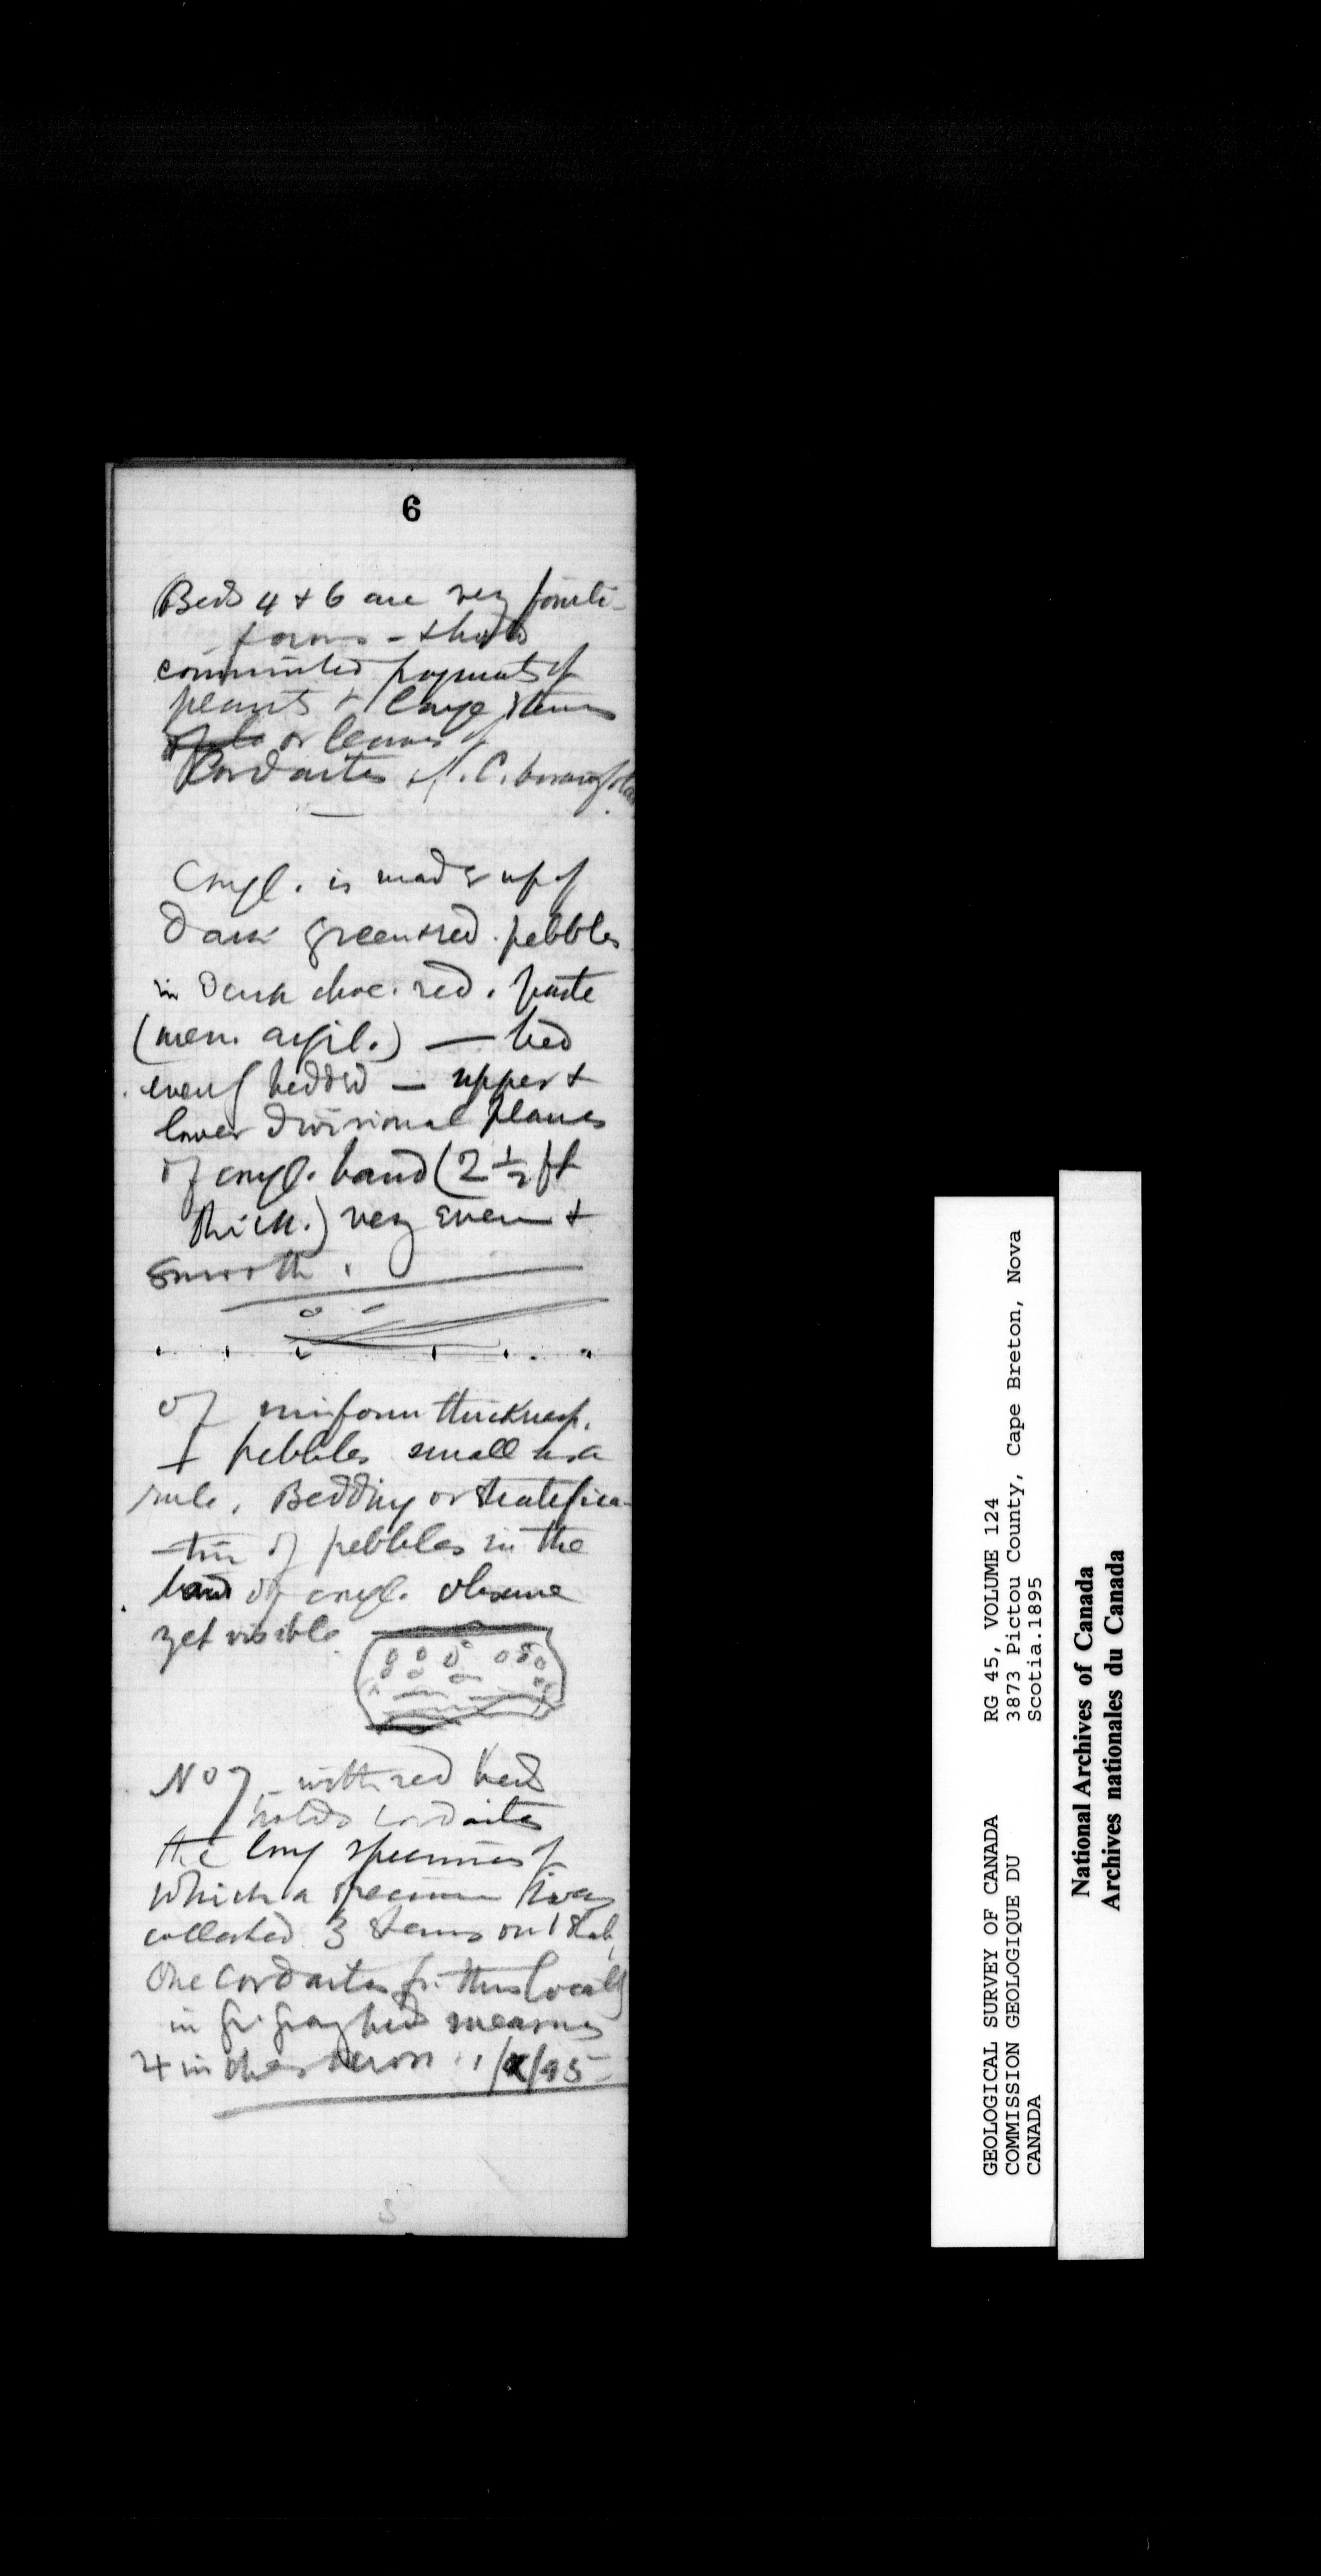 6
Beds 4 + 6 are very fossili-
ferous - + holds
comminuted fragments of
plants + large stems
or leaves of
Cordaites cf. C. borassifolia
Congl. is made up of
dark green + red pebbles
in dark choc. red. paste
(aren. argil.) — bed
evenly bedded — upper +
lower divisional planes
of congl. band (2 ½ ft
thick.) very even +
smooth.
of uniform thickness.
+ pebbles small as a
rule. Bedding or stratifica-
-tion of pebbles in the
band of congl. obscure
yet visible
No 7 - with red beds
holds cordaites
the long specimens of
which a specimen I was
collected 3 stems on 1 slab,
One cordaites fr. this locality
in gr. gray beds measures
4 inches across. 1/X/95-
GEOLOGICAL SURVEY OF CANADA
COMMISSION GEOLOGIQUE DU
CANADA
RG 45, VOLUME 124
3873 Pictou County, Cape Breton, Nova
Scotia.1895
National Archives of Canada
Archives nationales du Canada